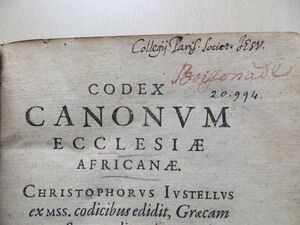 Collegij Paris. Societ. JESV.
Boissonade
20.994.
CODEX
CANONVM
ECCLESIÆ
AFRICANÆ.
CHRISTOPHORVS IVSTELLVS
ex MSS. codicibus edidit, Græcam